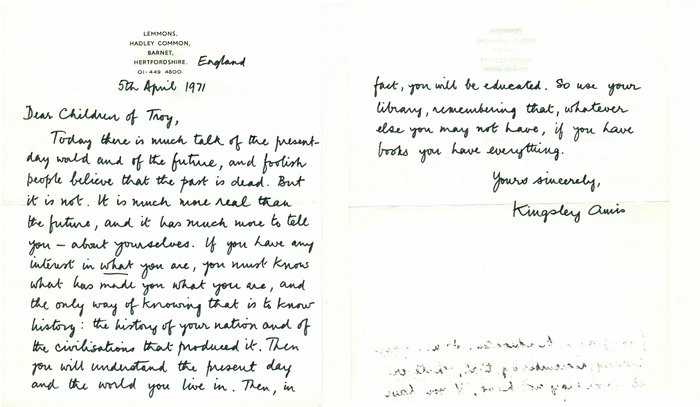 LEMMONS,
HADLEY COMMON,
BARNET,
HERTFORDSHIRE. England
01-449 4600.
5th April 1971
Dear Children of Troy,
Today there is much talk of the present-
day world and of the future, and foolish
people believe that the past is dead. But
it is not. It is much more real than
the future, and it has much more to tell
you — about yourselves. If you have any
interest in what you are, you must know
what has made you what you are, and
the only way of knowing that is to know
history: the history of your nation and of
the civilisations that produced it. Then
you will understand the present day
and the world you live in. Then, in
fact, you will be educated. So use your
library, remembering that, whatever
else you may not have, if you have
books you have everything.
Yours sincerely,
Kingsley Amis